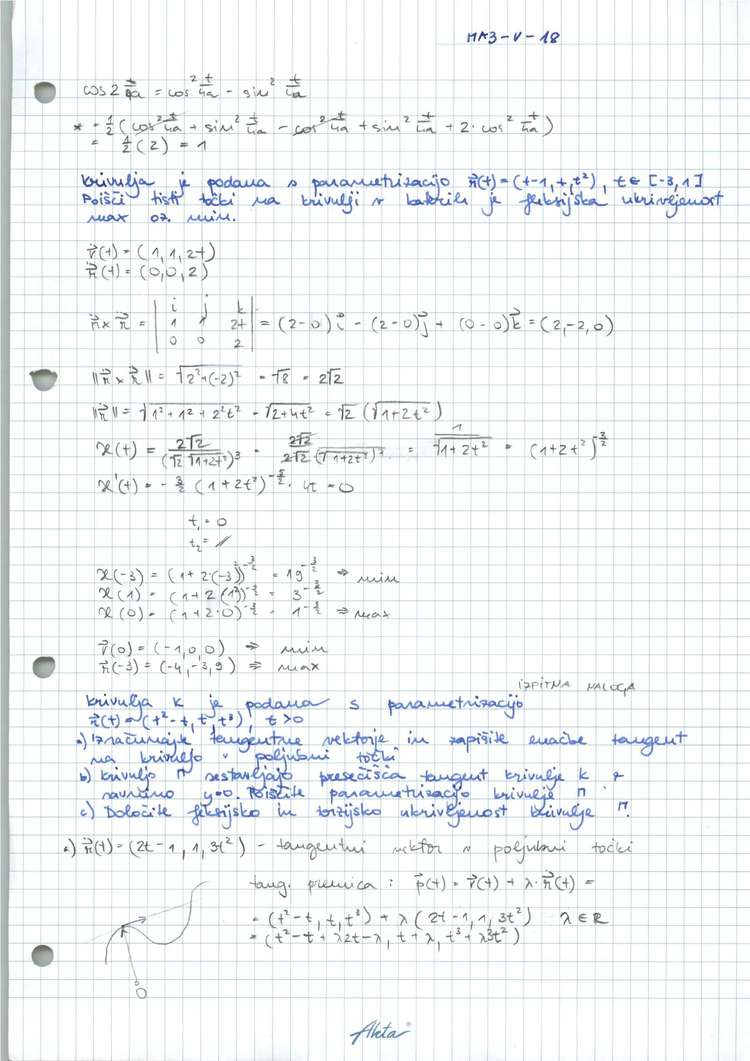 MA3-V-18
cos 2 t/4a = cos² t/4a - sin² t/4a
* = 1/2 (cos² t/4a + sin² t/4a - cos² t/4a + sin² t/4a + 2·cos² t/4a)
= 1/2 (2) = 1
krivulja je podana s parametrizacijo r⃗(t) = (t-1, t, t²), t ∈ [-3,1]
Poišči tisti točki na krivulji v katerih je fleksijska ukrivljenost
max oz min.
ṙ⃗(t) = (1, 1, 2t)
r̈⃗(t) = (0,0,2)
ṙ⃗ x r̈⃗ = | i j k |
| 1 1 2t |
| 0 0 2 | = (2-0) i⃗ - (2-0) j⃗ + (0-0) k⃗ = (2,-2,0)
||ṙ⃗ x r̈⃗|| = √(2²+(-2)²) = √8 = 2√2
||ṙ⃗|| = √(1²+1²+2²t²) = √(2+4t²) = √2 (√(1+2t²))
ϰ(t) = 2√2 / (√2 √(1+2t²))³ = 2√2 / 2√2 (√(1+2t²))³ = 1 / √(1+2t²) = (1+2t²)^(-3/2)
ϰ'(t) = - 3/2 (1+2t²)^(-5/2) · 4t = 0
t₁ = 0
t₂ = /
ϰ(-3) = (1+2·(-3)²)^(-3/2) = 19^(-3/2) ⇒ min
ϰ(1) = (1+2(1²))^(-3/2) = 3^(-3/2)
ϰ(0) = (1+2·0)^(-3/2) = 1^(-3/2) ⇒ max
r⃗(0) = (-1,0,0) ⇒ min
r⃗(-3) = (-4,-3,9) ⇒ max
IZPITNA NALOGA
krivulja K je podana s parametrizacijo
r⃗(t) = (t²-t, t, t³), t>0
a) Izračunajte tangentne vektorje in zapišite enačbe tangent
na krivuljo v poljubni točki
b) krivuljo Γ sestavljajo presečišča tangent krivulje K z
ravnino y=0. Poiščite parametrizacijo krivulje Γ
c) Določite fleksijsko in torzijsko ukrivljenost krivulje Γ.
a) ṙ⃗(t) = (2t-1, 1, 3t²) - tangentni vektor v poljubni točki
tang. premica : p⃗(t) = r⃗(t) + λ·ṙ⃗(t) =
= (t²-t, t, t³) + λ (2t-1, 1, 3t²) λ ∈ R
= (t²-t + λ2t-λ, t+λ, t³+λ3t²)
O
Akta